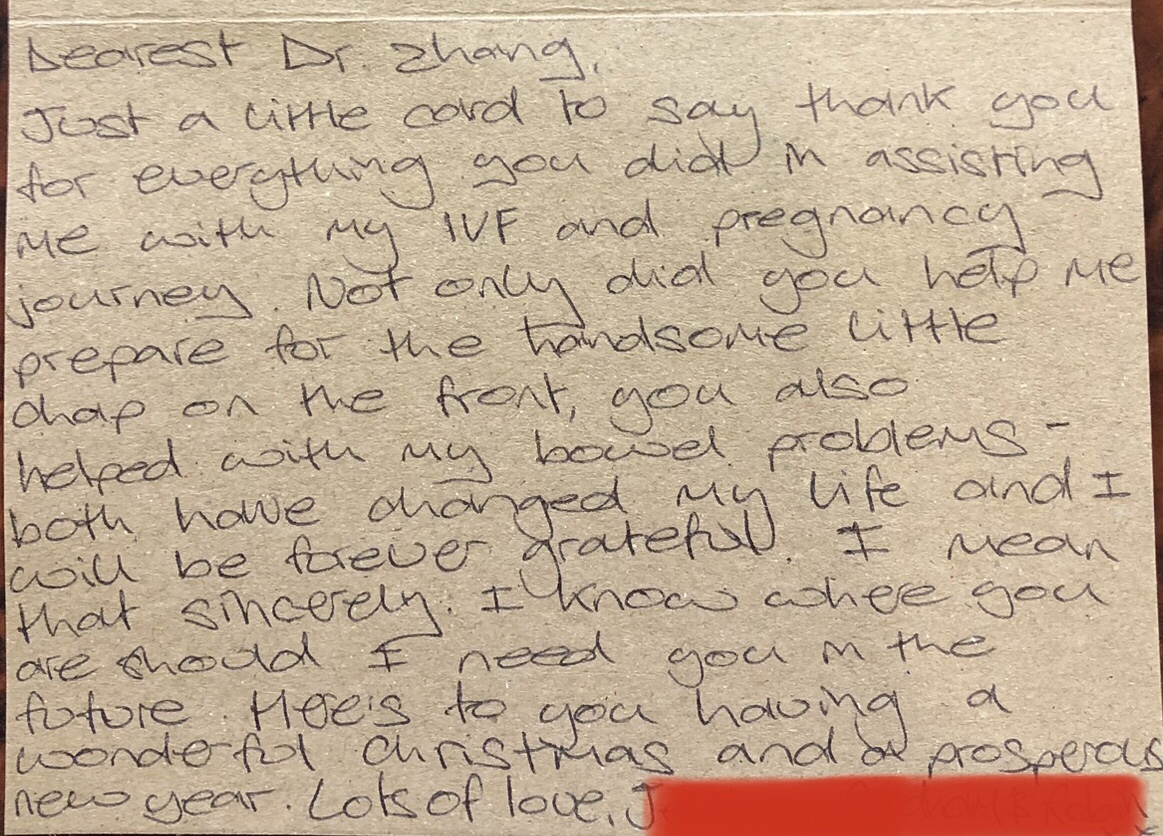 Dearest Dr. Zhang,
Just a little card to say thank you
for everything you did in assisting
me with my IVF and pregnancy
journey. Not only did you help me
prepare for the handsome little
chap on the front, you also
helped with my bowel problems -
both have changed my life and I
will be forever grateful. I mean
that sincerely. I know where you
are should I need you in the
future. Here's to you having a
wonderful Christmas and a prosperous
new year. Lots of love, J